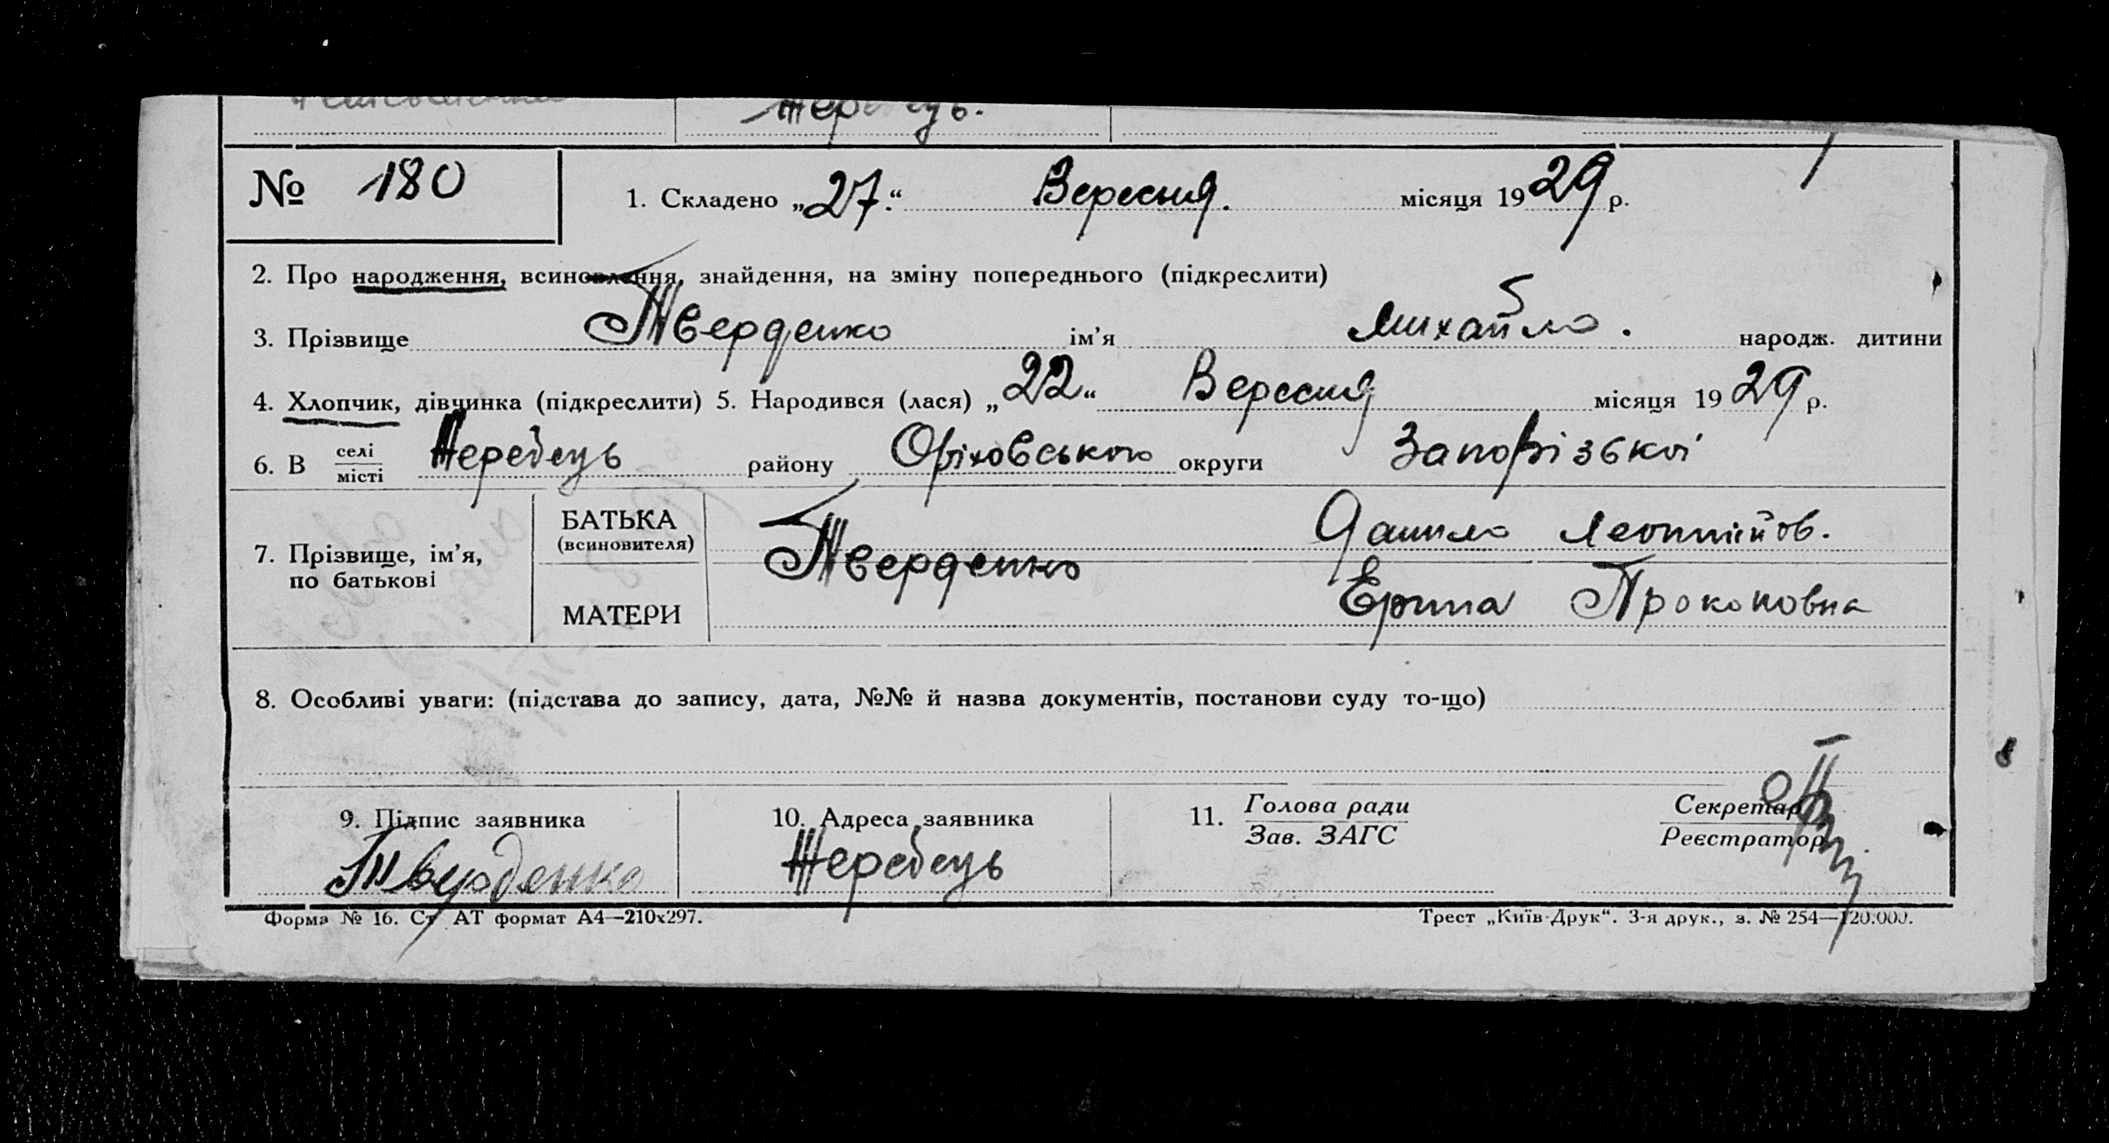 Жеребець.
№ 180 1. Складено „27.“ Вересня. місяця 1929 р.
2. Про народження, всиновлення, знайдення, на зміну попереднього (підкреслити)
3. Прізвище Тверденко ім’я Михайло. народж. дитини
4. Хлопчик, дівчинка (підкреслити) 5. Народився (лася) „22“ Вересня місяця 1929 р.
6. В селі
місті Жеребець району Оріховського округи Запорізької
7. Прізвище, ім’я,
по батькові
БАТЬКА
(всиновителя)
Тверденко Данило Леонтійов.
МАТЕРИ Прокоповна
8. Особливі уваги: (підстава до запису, дата, №№ й назва документів, постанови суду то-що)
9. Підпис заявника
Твърденко
10. Адреса заявника
Жеребець
11. Голова ради
Зав. ЗАГС
Секретар
Реєстратор
Форма № 16. Ст. АТ формат А4—210х297.
Трест „Київ-Друк“. 3-я друк., з. № 254—120.000.